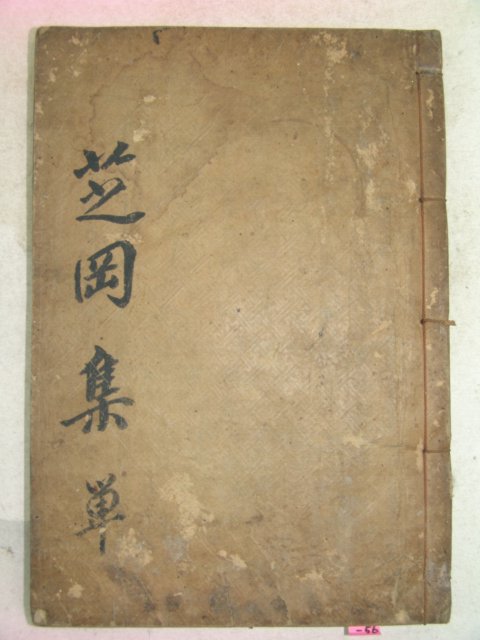 芝岡集単
-56